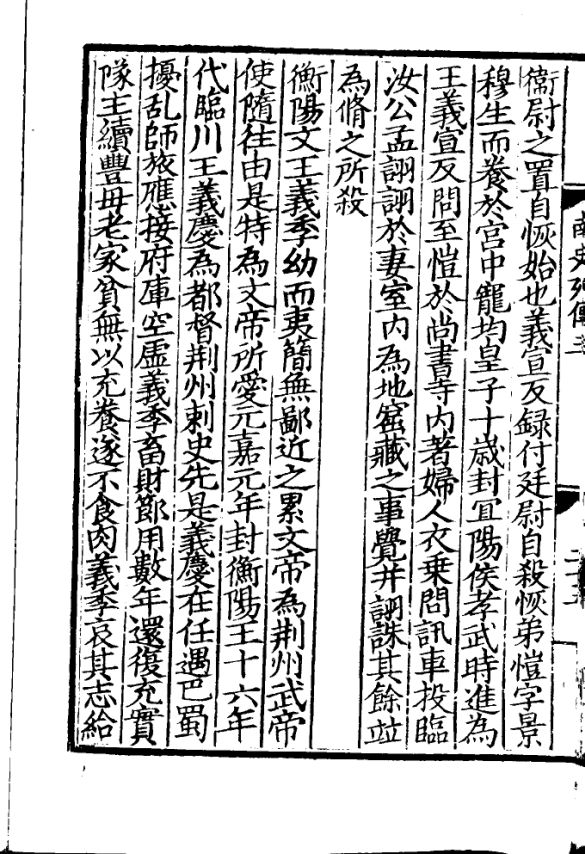 南史列傳三
衞尉之置自恢始也義宣反録付廷尉自殺恢弟愷字景
穆生而養於宮中寵均皇子十歲封宜陽侯孝武時進為
王義宣反問至愷於尚書寺内著婦人衣乗問訊車投臨
汝公孟詡詡於妻室内為地窟藏之事覺并詡誅其餘並
為脩之所殺
衡陽文王義季幼而夷簡無鄙近之累文帝為荆州武帝
使隨往由是特為文帝所愛元嘉元年封衡陽王十六年
代臨川王義慶為都督荆州刺史先是義慶在任遇巴蜀
擾乱師旅應接府庫空虚義季畜財節用數年還復充實
隊主續豐母老家貧無以充養遂不食肉義季哀其志給